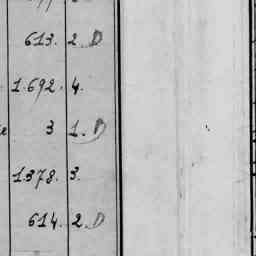 613. 2. D
1.692. 4.
3 1. D
1.378. 3.
614. 2. D